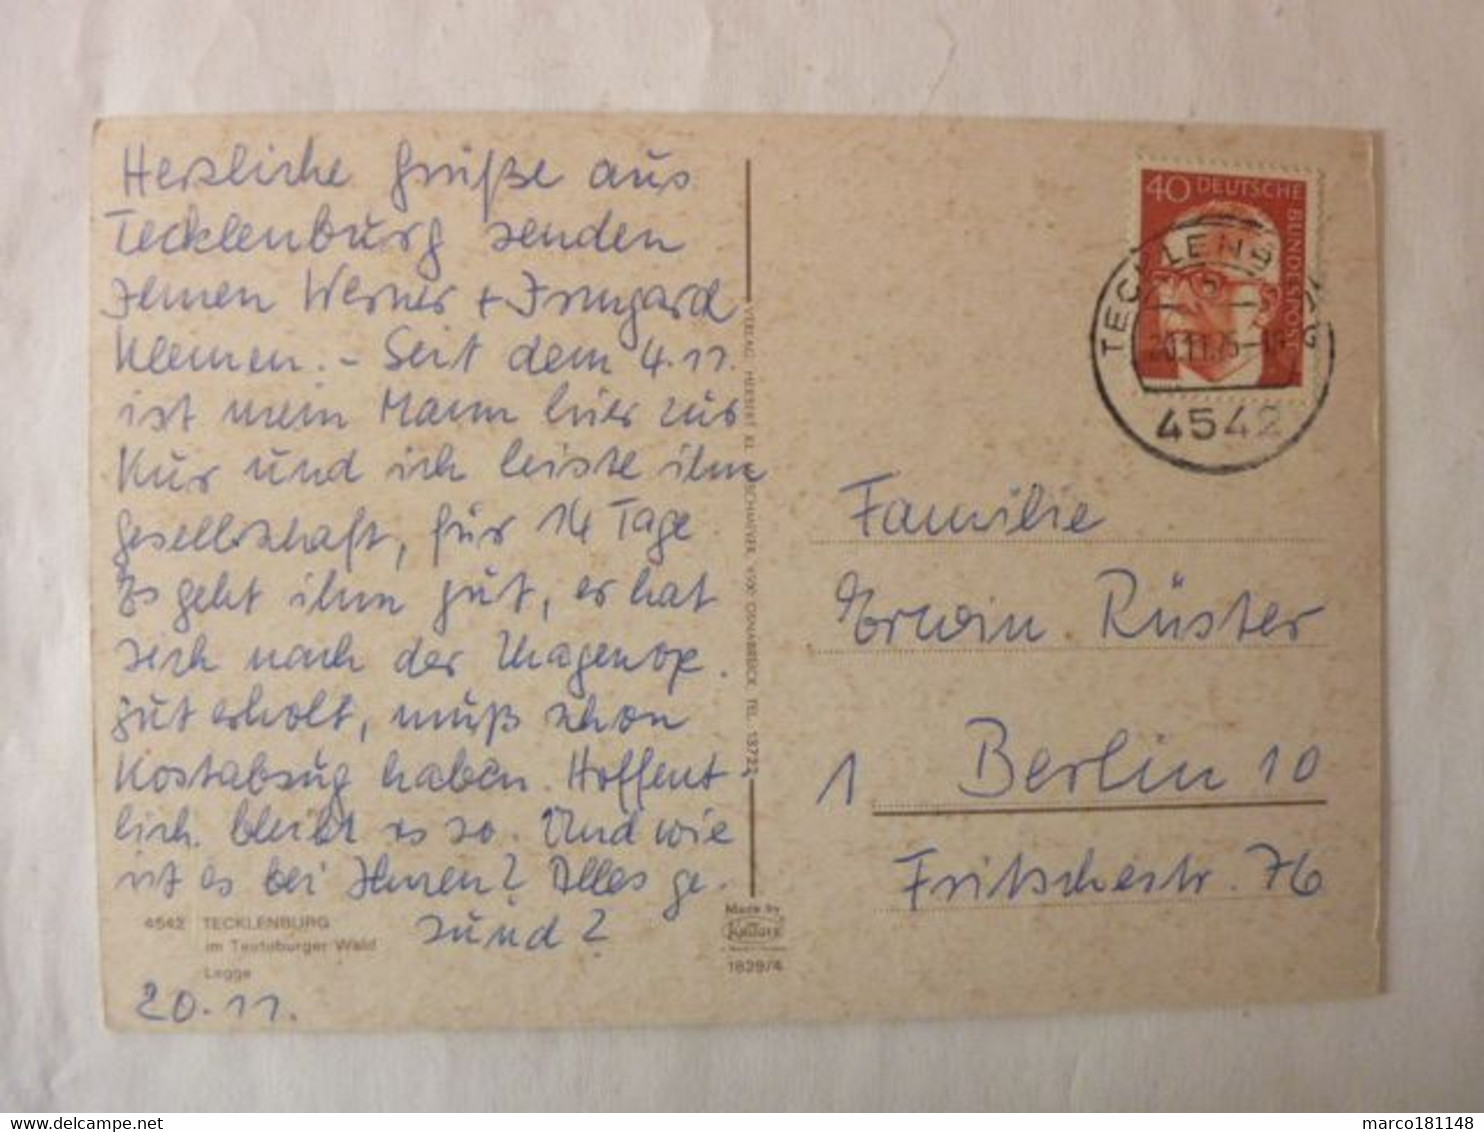 Herzliche Grüße aus
Tecklenburg senden
Ihnen Werner + Irmgard
Kleinen. - Seit dem 4.11.
ist mein Mann hier zur
Kur und ich leiste ihm
Gesellschaft, für 14 Tage.
Es geht ihm gut, er hat
sich nach der Magenop.
gut erholt, muß schon
Kostabzug haben. Hoffent-
lich bleibt es so. Und wie
ist es bei Ihnen? Alles ge-
sund?
20.11.
4542 TECKLENBURG
im Teutoburger Wald
Legge
VERLAG HERBERT OSNABRÜCK TEL. 13722
Made by
Krüger
1829/4
40 DEUTSCHE BUNDESPOST
TECKLENBURG
20.11.75
4542
Familie
Erwin Rüster
1 Berlin 10
Fritschestr. 76
marco181148